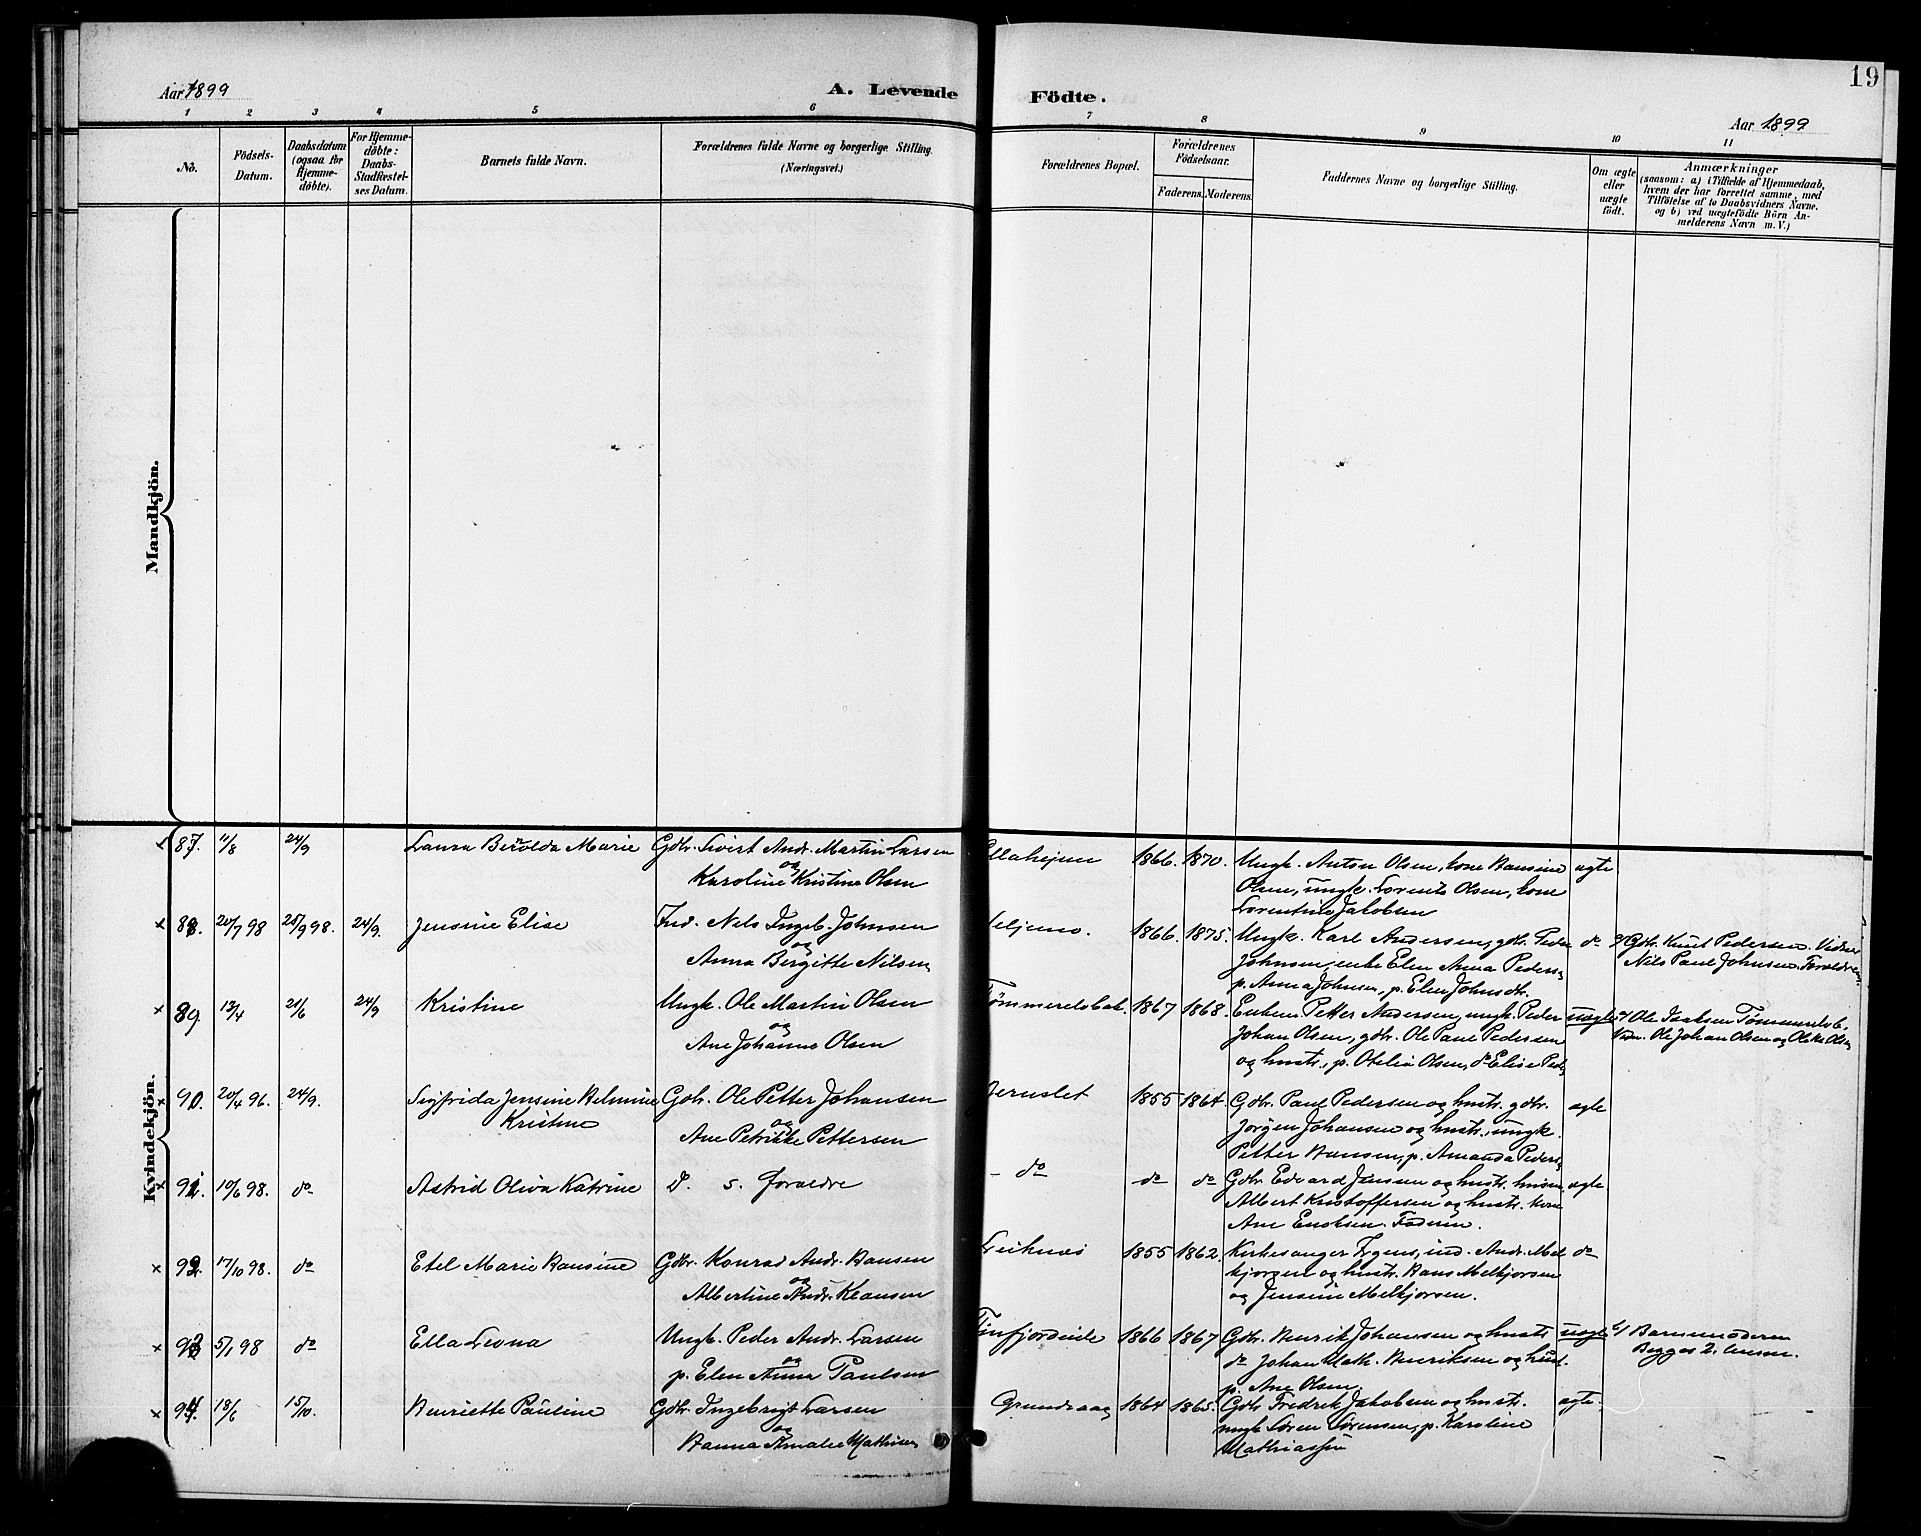 19
Aar 1899
A. Levende
Födte.
Aar 1899
1 2 3 4 5 6 7 8 9 10 11
No.
Födsels-
Datum.
Daabsdatum
(ogsaa for
Hjemme-
döbte).
For Hjemme-
döbte:
Daabs-
Stadfæstel-
ses Datum.
Barnets fulde Navn.
Forældrenes fulde Navne og borgerlige Stilling.
(Næringsvei.)
Forældrenes Bopæl.
Forældrenes
Födselsaar.
Faderens.
Moderens.
Faddernes Navne og borgerlige Stilling.
Om ægte
eller
uægte
födt.
Anmærkninger
(saasom: a) i Tilfælde af Hjemmedaab,
hvem der har forrettet samme, med
Tilföielse af to Daabsvidners Navne.
og b) ved uægtefödte Börn An-
melderens Navn m. V.)
Mandkjön.
Kvindekjön.
87. 11/8 24/9 Laura Marie Gdbr. Sivert Andr. Martin Larsen 1866. 1870. Ungk. Anton Olsen, kone Hansine ægte
og
Karoline Kristine Olsen
Olsen, ungk. Lorents Olsen, kone
Lorentine Jakobsen
88. 20/7 98 25/9 98. 24/9. Jensine Elise Ind. Nils Ingeb. Johnsen 1866. 1875. Ungk. Karl Andersen, gdbr. Peder do Gdbr. Knut Pedersen. Vidner
og
Anna Bergitte Nilsen
Johnsen, enke Elen Anna Peders.
Nils Paul Johnsen, Forældrene
p. Anna Johnsen, p. Elen Johnsdtr.
89. 13/4 21/6 24/9 Kristine Ungk. Ole Martin Olsen Tömmerelvbak. 1867 1868. Enkem. Petter Andersen, ungk. Peder uægte Ole Isaksen Tömmerelvb.
og
Ane Johanna Olsen
Johan Olsen, gdbr. Ole Paul Pedersen
Vidn. Ole Johan Olsen og
og hustr., p. Otelia Olsen, do Elise Peders
90. 20/4 96. 24/9. Sigfrida Jensine Helmine Gdbr. Ole Petter Johansen 1855 1864. Gdbr. Paul Pedersen og hustr. gdbr. ægte
Kristine
og
Ane Petrikke Pettersen
Jörgen Johansen og hustr., ungk.
Petter Hansen, p. Amanda Peders.
91. 10/6 98. do Astrid Oliva Katrine D. s. forældre - do do do Gdbr. Edvard Jensen og hustr. ægte.
Albert Kristoffersen og hustr. kone
Ane Enoksen. Faderen.
92. 17/10 98. do Etel Marie Hansine Gdbr. Konrad Andr. Hansen 1855 1862. Kirkesanger ind. Andr. Mel do
og
Albertine Andr. Klausen
kjorsen og hustr. Hans Melkjorsen
og Jensine Melkjorsen.
93. 5/1 98 do Ella Leona Ungk. Peder Andr. Larsen 1866 1867. Gdbr. Henrik Johansen og hustr. uægte b/ Barnemoderen
og
p. Elen Anna Paulsen
do Johan Math. Henriksen og hust.
Begges 2.
p. Ane Olsen
94. 18/6 15/10. Henriette Pauline Gdbr. Ingebrigt Larsen 1864 1865. Gdbr. Fredrik Jakobsen og hustr. ægte.
og
Hanna Amalie
ungk. Sören Sörensen, p. Karoline
Mathiassen